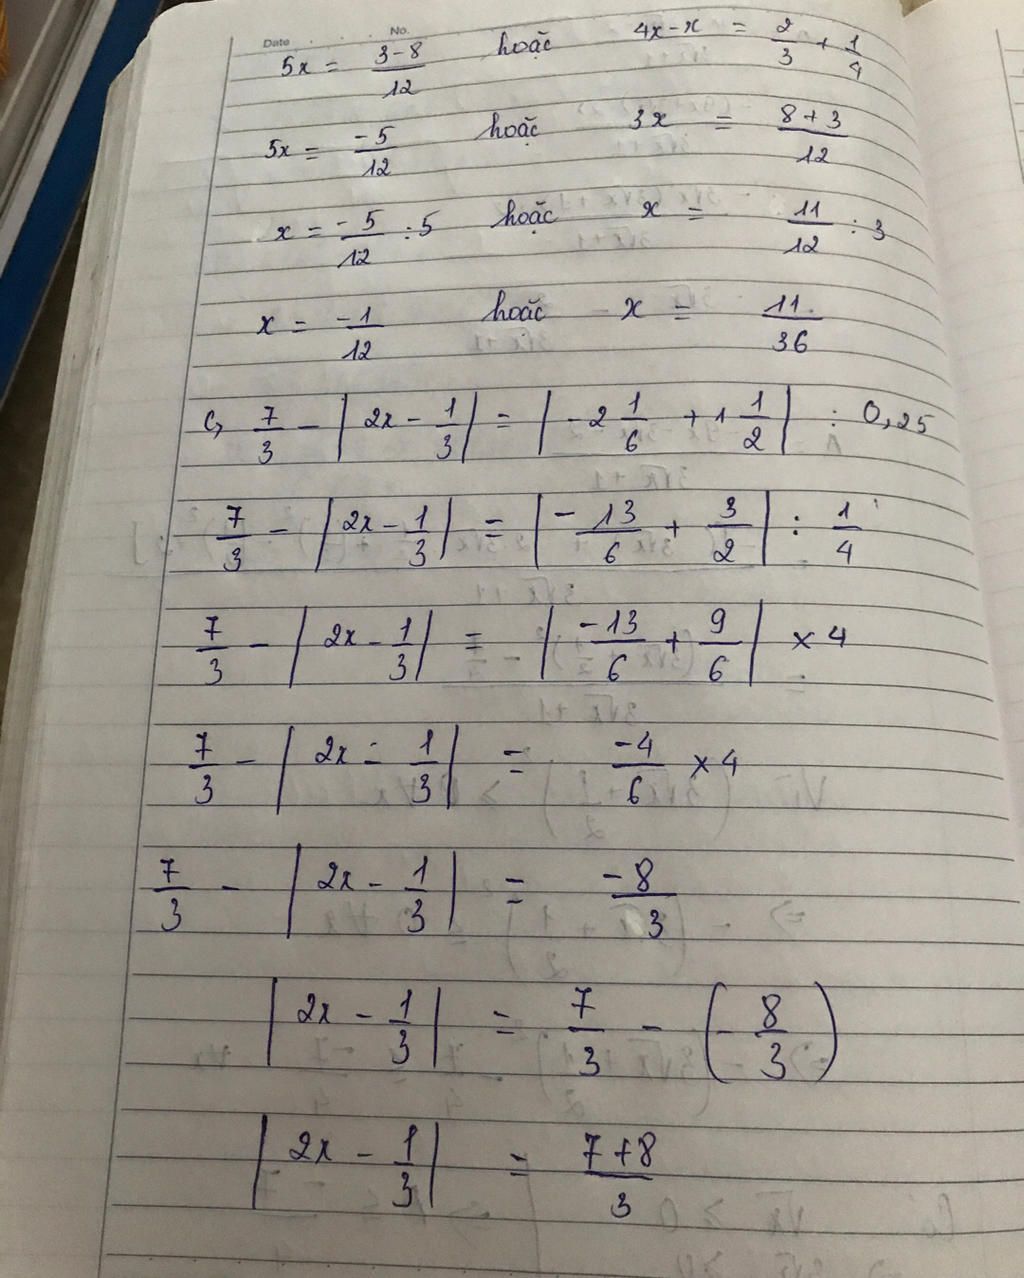 Date No.
5x = \frac{3-8}{12} hoặc 4x-x = \frac{2}{3} + \frac{1}{4}
5x = \frac{-5}{12} hoặc 3x = \frac{8+3}{12}
x = \frac{-5}{12} : 5 hoặc x = \frac{11}{12} : 3
x = \frac{-1}{12} hoặc x = \frac{11}{36}
c, \frac{7}{3} - |2x - \frac{1}{3}| = |-2\frac{1}{6} + 1\frac{1}{2}| : 0,25
\frac{7}{3} - |2x - \frac{1}{3}| = |-\frac{13}{6} + \frac{3}{2}| : \frac{1}{4}
\frac{7}{3} - |2x - \frac{1}{3}| = |\frac{-13}{6} + \frac{9}{6}| × 4
\frac{7}{3} - |2x - \frac{1}{3}| = \frac{-4}{6} × 4
\frac{7}{3} - |2x - \frac{1}{3}| = \frac{-8}{3}
|2x - \frac{1}{3}| = \frac{7}{3} - (-\frac{8}{3})
|2x - \frac{1}{3}| = \frac{7+8}{3}